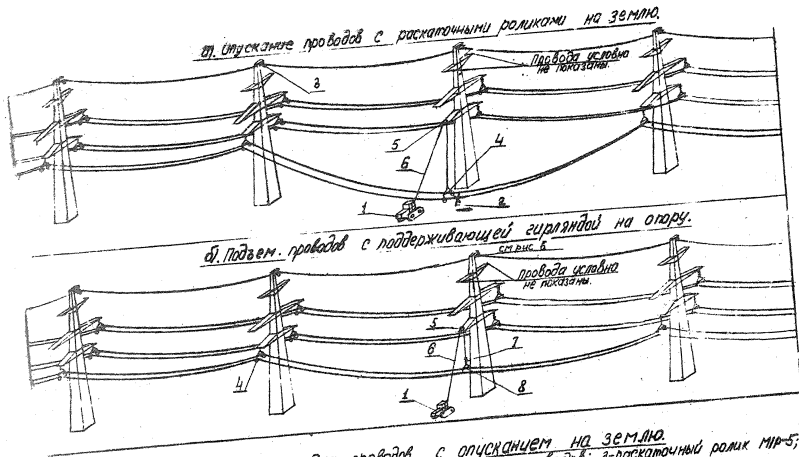 а). Опускание проводов с раскаточными роликами на землю.
Провода условно
не показаны.
3
5
6
4
1
2
б). Подъем проводов с поддерживающей гирляндой на опору.
см рис 6
Провода условно
не показаны.
5
7
6
4
8
1
проводов с опусканием на землю.
3-раскаточный ролик М1Р-5;